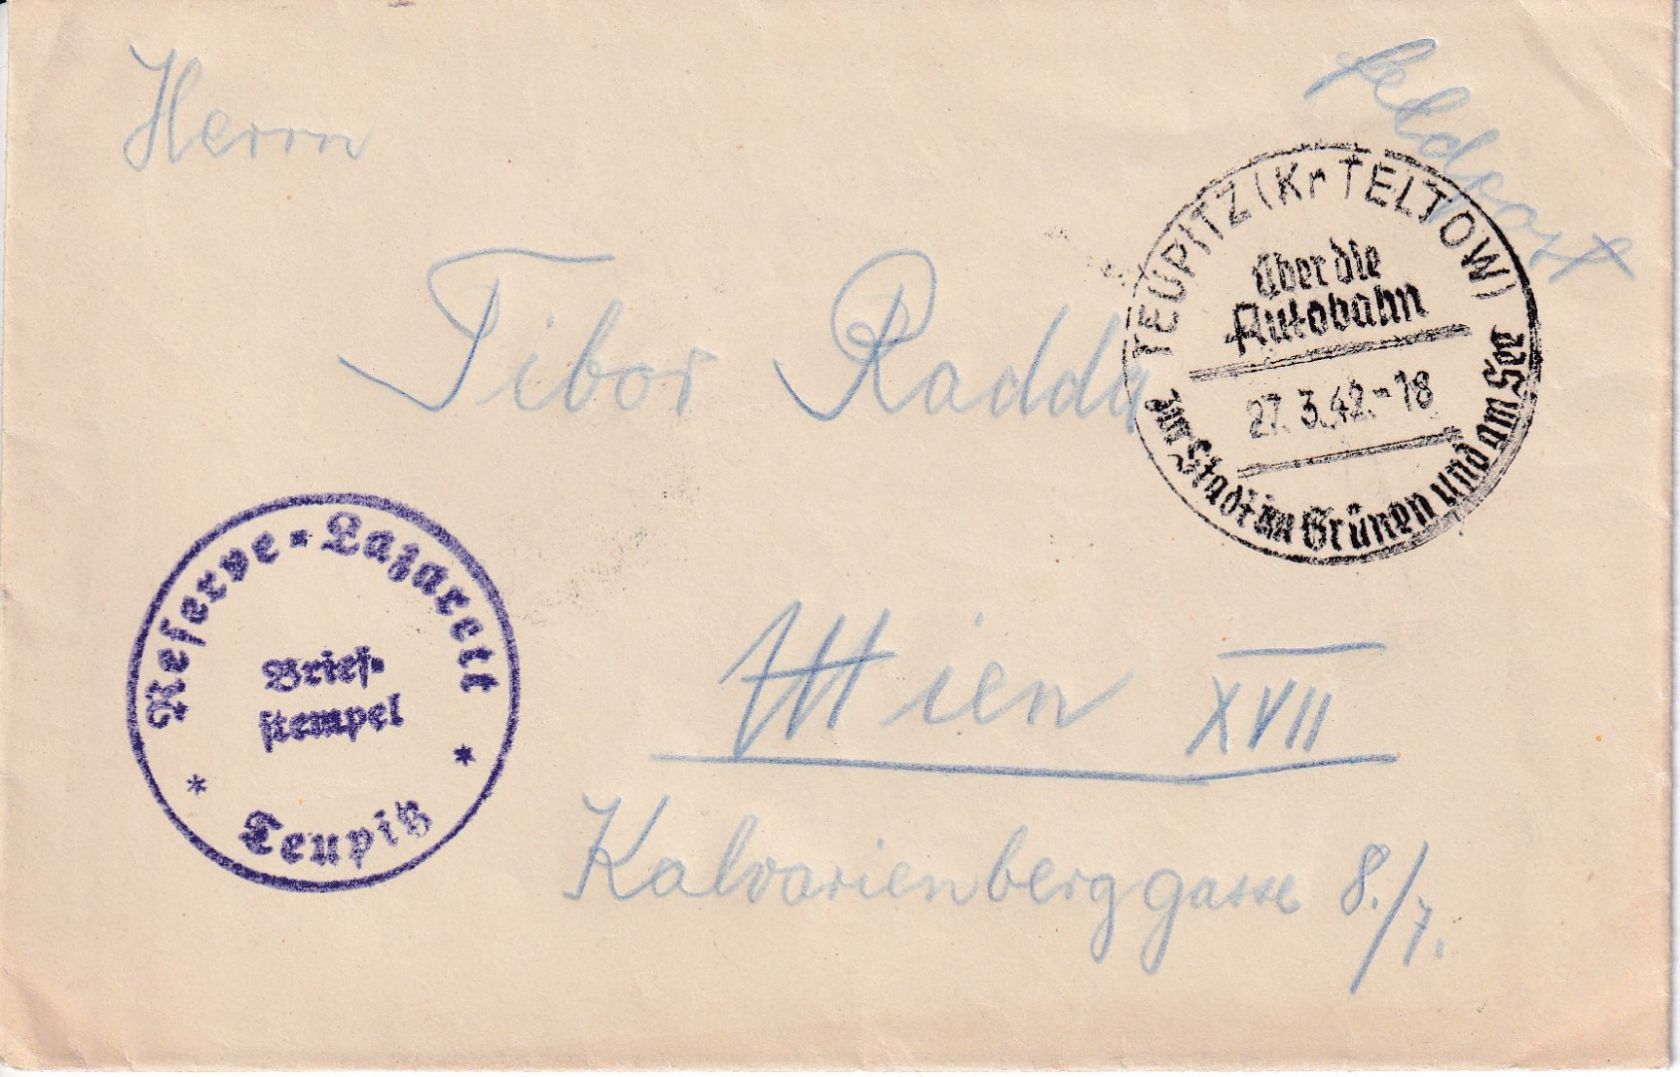 Herrn
Feldpost
Tibor Radda
Wien XVII
Kalvarienberggasse 8./7.
TEUPITZ (Kr TELTOW)
Über die
Autobahn
27.3.42.-18
zur Stadt im Grünen und am See
Reserve-Lazarett
Brief-
stempel
* Teupitz *